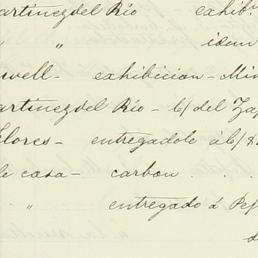 artinez del Rio exhib.
" " idem
well - exhibicion - Min
artinez del Rio - c/ del Zap
Flores - entregadole á c/ d
le casa - carbon . .
" entregado á Pep
d